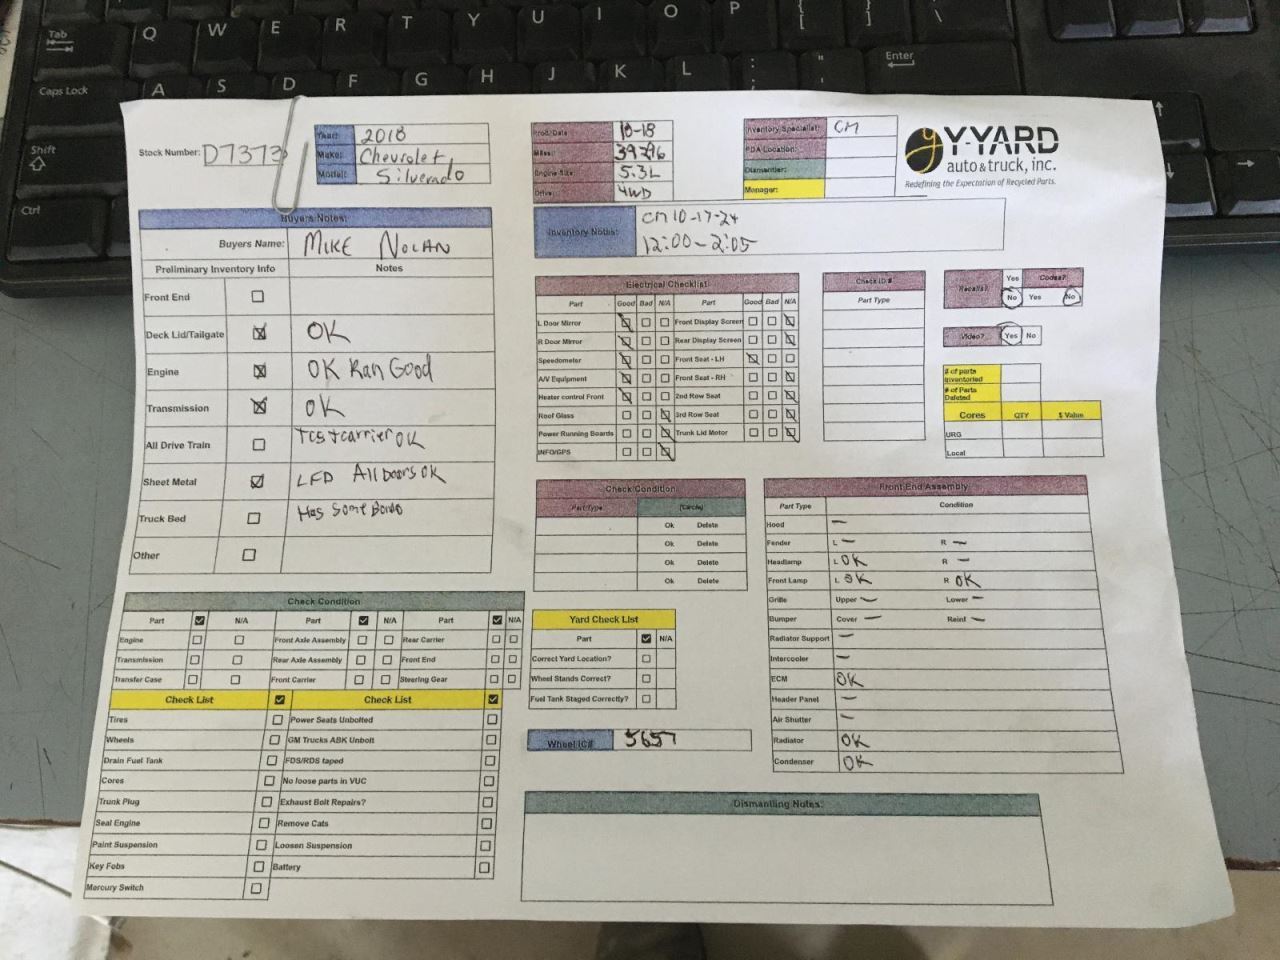 Tab Q W E R T Y U I O P { [ } ] | \
Caps Lock A S D F G H J K L : ; " ' Enter
Shift
Ctrl
Stock Number: D7373
Year: 2018
Make: Chevrolet
Model: Silverado
Prod. Date 10-18
Miles: 39296
Engine Size: 5.3L
Drive: 4WD
Inventory Specialist: CM
PDA Location:
Dismantler:
Manager:
Y-YARD
auto & truck, inc.
Redefining the Expectation of Recycled Parts.
Buyers Notes:
Buyers Name: MIKE NOLAN
Preliminary Inventory Info Notes
Front End
Deck Lid/Tailgate OK
Engine OK Ran Good
Transmission OK
All Drive Train Tcst carrier OK
Sheet Metal LFD All Doors OK
Truck Bed Has Some
Other
Inventory Notes: CM 10-17-24
12:00-2:05
Electrical Checklist
Part Good Bad N/A Part Good Bad N/A
L Door Mirror Front Display Screen
R Door Mirror Rear Display Screen
Speedometer Front Seat - LH
A/V Equipment Front Seat - RH
Heater control Front 2nd Row Seat
Roof Glass 3rd Row Seat
Power Running Boards Trunk Lid Motor
INFO/GPS
Check ID #
Part Type
Recalls? Yes Codes?
No Yes No
Video? Yes No
# of parts
Inventoried
# of Parts
Deleted
Cores QTY $ Value
URG
Local
Check Condition
Part Type (Circle)
Ok Delete
Ok Delete
Ok Delete
Ok Delete
Front End Assembly
Part Type Condition
Hood —
Fender L — R —
Headlamp L OK R —
Front Lamp L OK R OK
Grille Upper — Lower —
Bumper Cover — Reinf —
Radiator Support —
Intercooler —
ECM OK
Header Panel —
Air Shutter —
Radiator OK
Condenser OK
Check Condition
Part N/A Part N/A Part N/A
Engine Front Axle Assembly Rear Carrier
Transmission Rear Axle Assembly Front End
Transfer Case Front Carrier Steering Gear
Check List Check List
Tires Power Seats Unbolted
Wheels GM Trucks ABK Unbolt
Drain Fuel Tank FDS/RDS taped
Cores No loose parts in VUC
Trunk Plug Exhaust Bolt Repairs?
Seal Engine Remove Cats
Paint Suspension Loosen Suspension
Key Fobs Battery
Mercury Switch
Yard Check List
Part N/A
Correct Yard Location?
Wheel Stands Correct?
Fuel Tank Staged Correctly?
Wheel IC# 5657
Dismantling Notes: